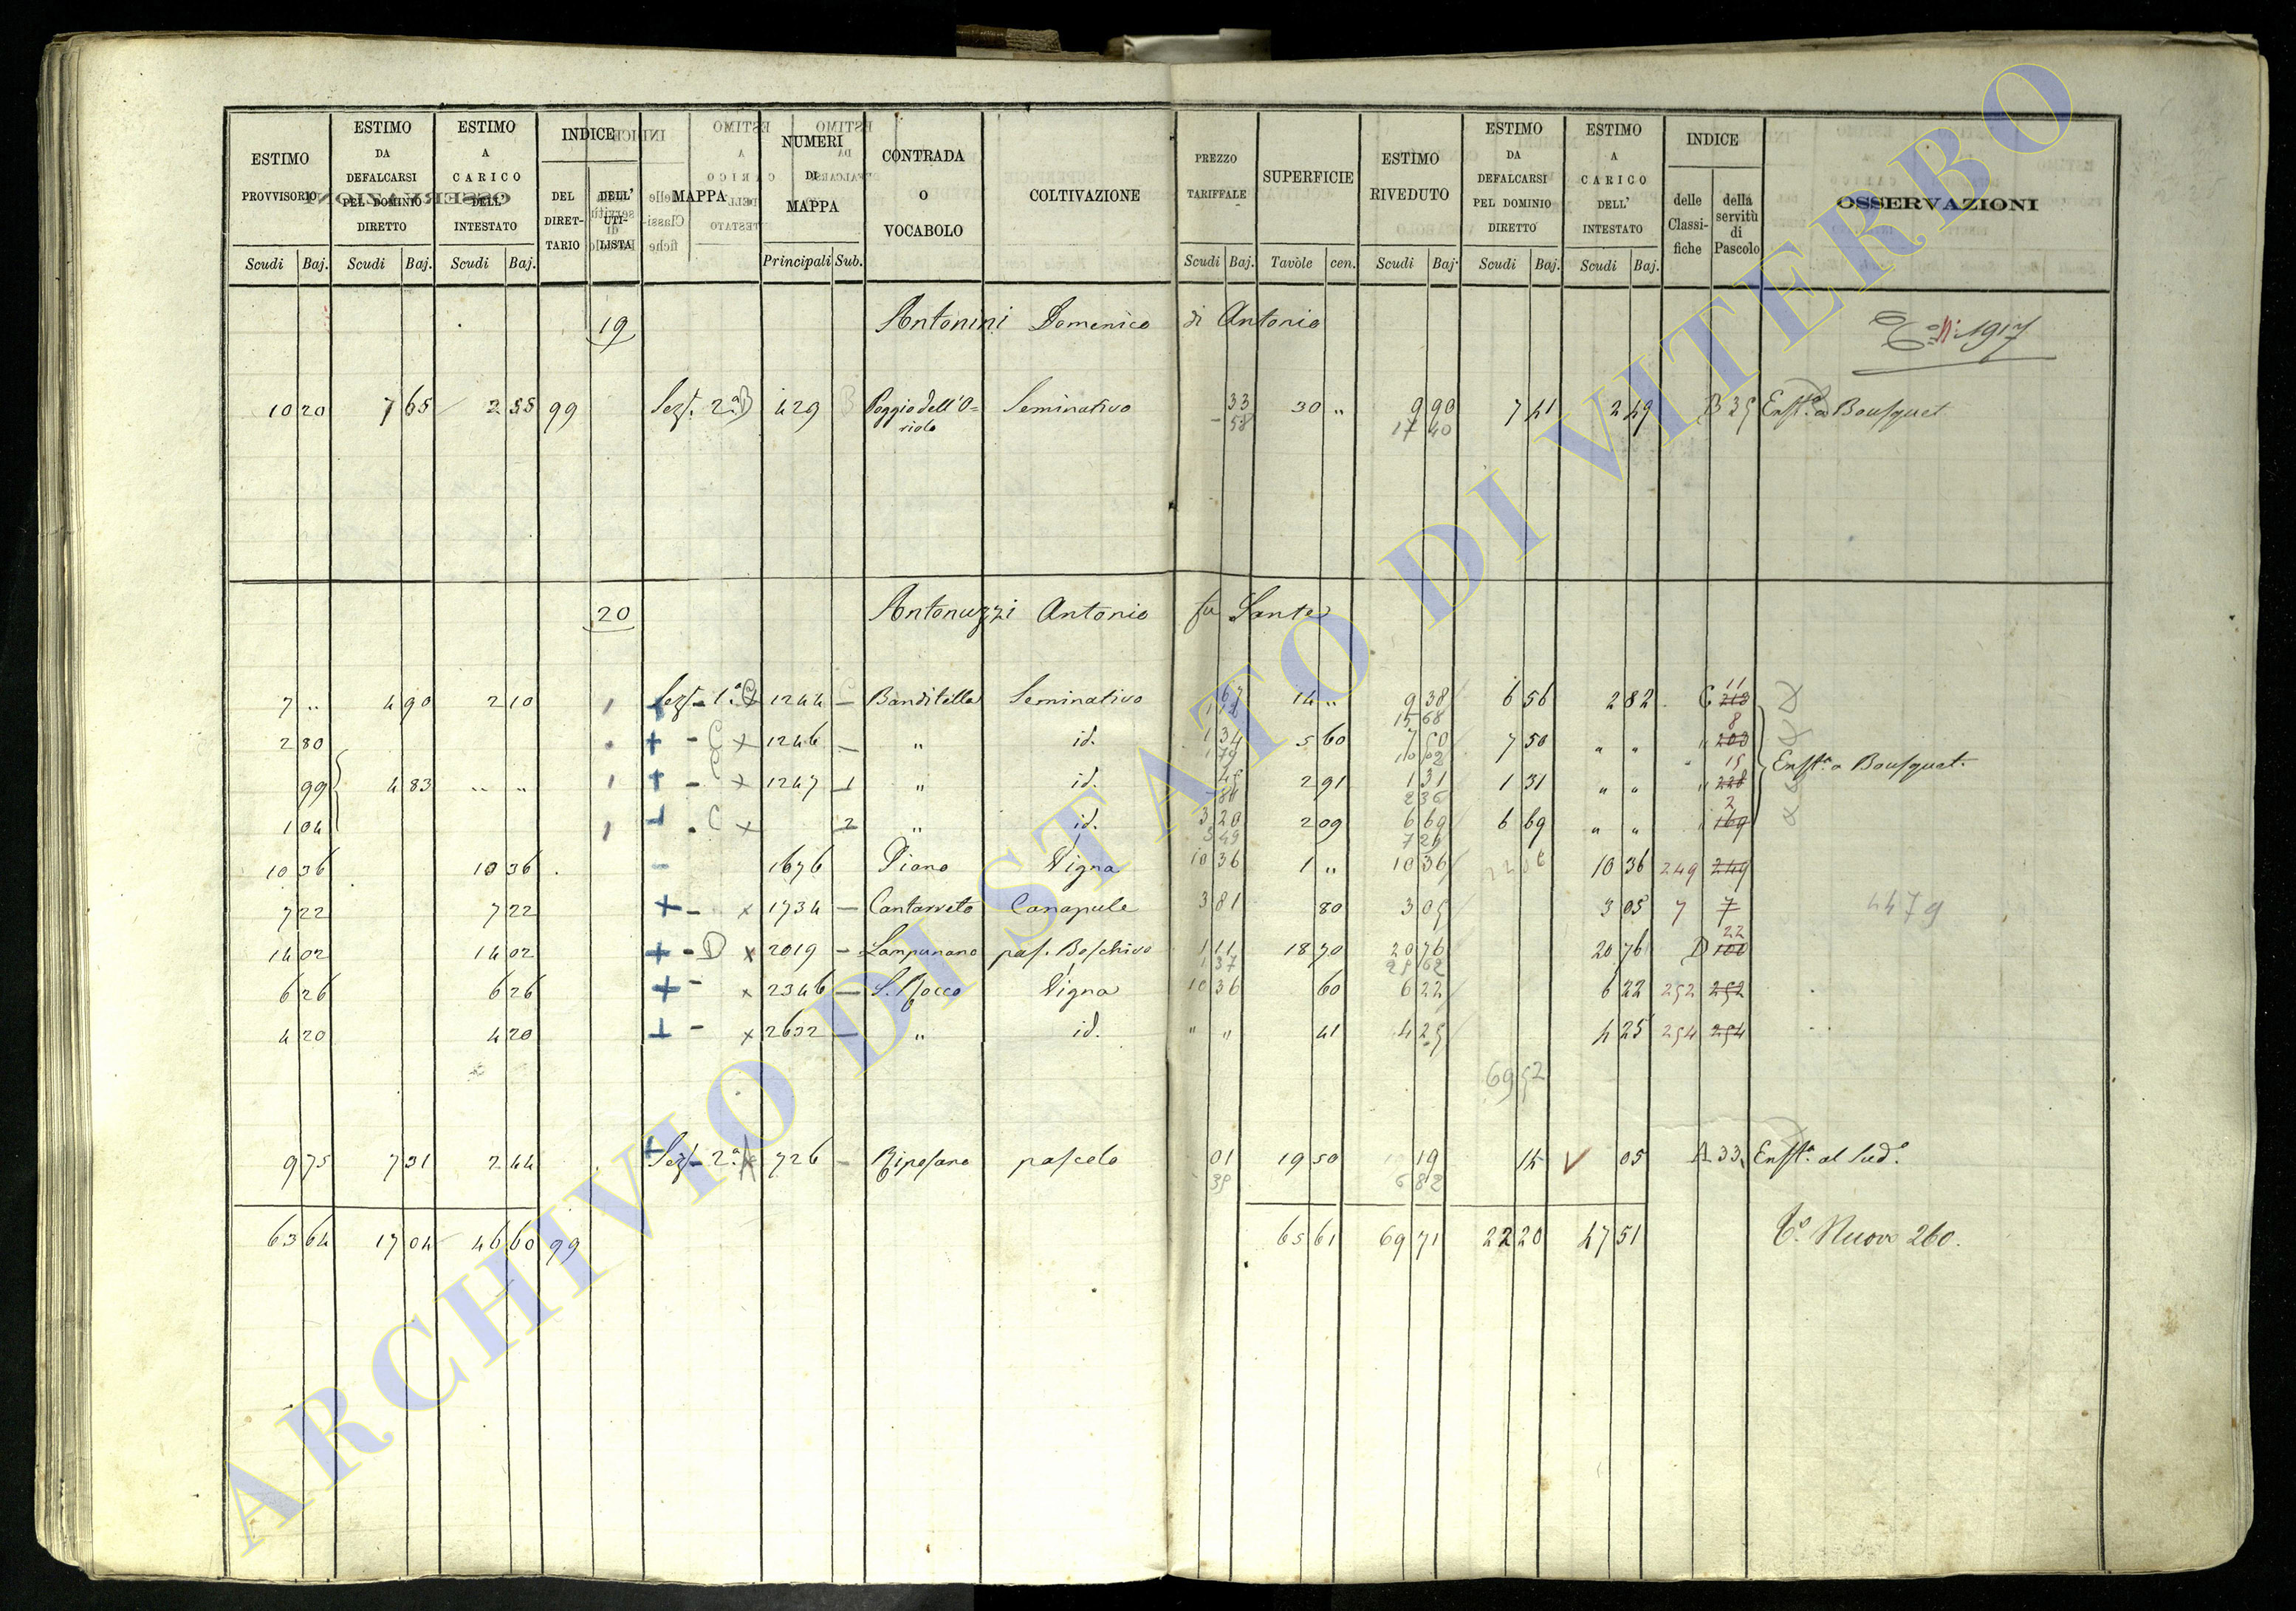 ESTIMO PROVVISORIO | ESTIMO DA DEFALCARSI PEL DOMINIO DIRETTO | ESTIMO A CARICO DELL' INTESTATO | INDICE | MAPPA | NUMERI DI MAPPA | CONTRADA O VOCABOLO | COLTIVAZIONE | PREZZO TARIFFALE | SUPERFICIE | ESTIMO RIVEDUTO | ESTIMO DA DEFALCARSI PEL DOMINIO DIRETTO | ESTIMO A CARICO DELL' INTESTATO | INDICE | OSSERVAZIONI
DEL DIRETTARIO | DELL' UTILISTA | delle Classifiche | della servitù di Pascolo
Scudi Baj. | Scudi Baj. | Scudi Baj. | Principali Sub. | Scudi Baj. | Tavole cen. | Scudi Baj. | Scudi Baj. | Scudi Baj.
19 Antonini Domenico di Antonio 1917
10 20 | 7 65 | 2 55 | 99 | Sez. 2ª B | 429 | Poggio dell'O=riolo | Seminativo | 33 58 | 30 " | 9 90 17 40 | 7 41 | 2 49 | B 35 | Enf.ª a Bousquet
20 Antonuzzi Antonio fu Sante
7 " | 4 90 | 2 10 | Sez. 1ª C | 1244 — | Banditella | Seminativo | 67 | 14 " | 9 38 15 68 | 6 56 | 2 82 | C 11 213
2 80 | + - C x | 1246 — | " | id. | 1 34 1 79 | 5 60 | 7 50 | 7 50 | " " | " 8 203
99 | 4 83 | " " | + - C x | 1247 1 | " | id. | 45 | 2 91 | 1 31 2 36 | 1 31 | " " | " 15 228 | Enf.ª a Bousquet.
1 04 | C x | 2 | " | id. | 3 20 3 49 | 2 09 | 6 69 7 29 | 6 69 | " " | " 2 169
10 36 | 10 36 | 1676 | Piano | Vigna | 10 36 | 1 " | 10 36 | 10 36 | 249 249
7 22 | 7 22 | + - x | 1734 — | Cantarreto | Canapule | 3 81 | 80 | 3 05 | 3 05 | 7 7 | 4479
14 02 | 14 02 | + - D x | 2019 — | Lampunano | pas. Boschivo | 1 11 1 37 | 18 70 | 20 76 25 62 | 20 76 | D 22 100
6 26 | 6 26 | + - x | 2346 — | S. Rocco | Vigna | 10 36 | 60 | 6 22 | 6 22 | 252 252
4 20 | 4 20 | - x | 2632 — | " | id. | " " | 41 | 4 25 | 4 25 | 254 254
69 52
9 75 | 7 31 | 2 44 | + Sez. 2ª A | 726 — | Ripesano | pascolo | 01 35 | 19 50 | 19 6 82 | 14 | 05 | A 33 | Enf.ª al Sud.º
63 64 | 17 04 | 46 60 | 99 | 65 61 | 69 71 | 22 20 | 47 51 | C.º Nuovo 260.
ARCHIVIO DI STATO DI VITERBO